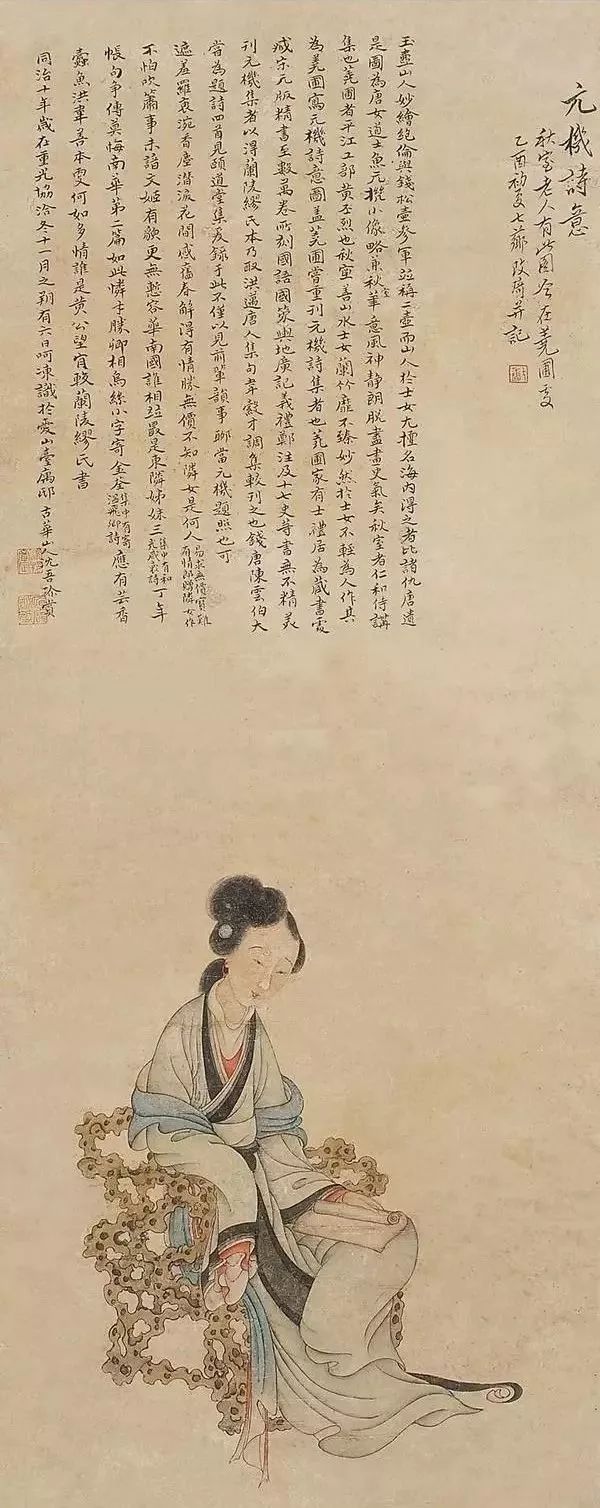 元機詩意
秋室老人有此圖今在蕘圃處
乙酉初夏七薌改琦并記
玉壺山人妙繪絕倫與錢松壺參軍竝稱二壺而山人於士女尤擅名海內得之者比諸仇唐遺
是圖為唐女道士魚元機小像略兼秋華意風神静朗脫盡畫史氣矣秋室者仁和侍講
集也蕘圃者平江工部黃丕烈也秋室善山水士女蘭竹靡不臻妙然於士女不輕為人作其
為蕘圃寫元機詩意圖蓋蕘圃嘗重刊元機詩集者也蕘圃家有士禮居為藏書處
咸宋元版精書至數萬卷所刻國語國策輿地廣記義禮鄭注及十七史等書無不精美
刊元機集者以得蘭陵繆氏本乃取洪邁唐人集句韋縠才調集較刊之也錢唐陳雲伯大
嘗為題詩四首見頤道堂集爰録于此不僅以見前輩韻事聊當元機題照也可
遮羞羅袠浣香塵潛淚花間感舊春解得有情勝無價不知隣女是何人易求無價寶難有情郎贈隣女作
不怕吹簫事未諧文姬有願更無慙容華南國誰相竝最是東隣姊妹三集中有和光威裒詩丁年
帳句爭傳莫悔南華第二篇如此憐才勝卿相烏絲小字寄金荃集中有寄温飛卿詩應有芸香
蠹魚洪韋善本更何如多情誰是黃公望肯較蘭陵繆氏書
同治十年歲在重光協洽冬十一月之朔有六日呵凍識於愛山臺寓邸古華山人沈吾